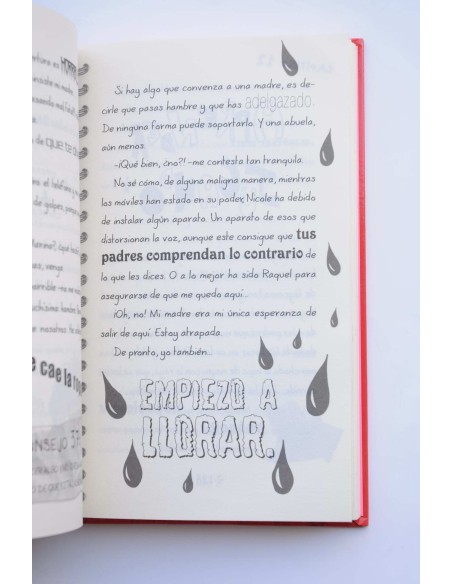 Si hay algo que convenza a una madre, es de-
cirle que pasas hambre y que has adelgazado.
De ninguna forma puede soportarlo. Y una abuela,
aún menos.
–¡Qué bien, ¿no?! –me contesta tan tranquila.
No sé cómo, de alguna maligna manera, mientras
los móviles han estado en su poder, Nicole ha debido
de instalar algún aparato. Un aparato de esos que
distorsionan la voz, aunque este consigue que tus
padres comprendan lo contrario de
lo que les dices. O a lo mejor ha sido Raquel para
asegurarse de que me quedo aquí...
¡Oh, no! Mi madre era mi única esperanza de
salir de aquí. Estoy atrapada.
De pronto, yo también...
EMPIEZO A
LLORAR.